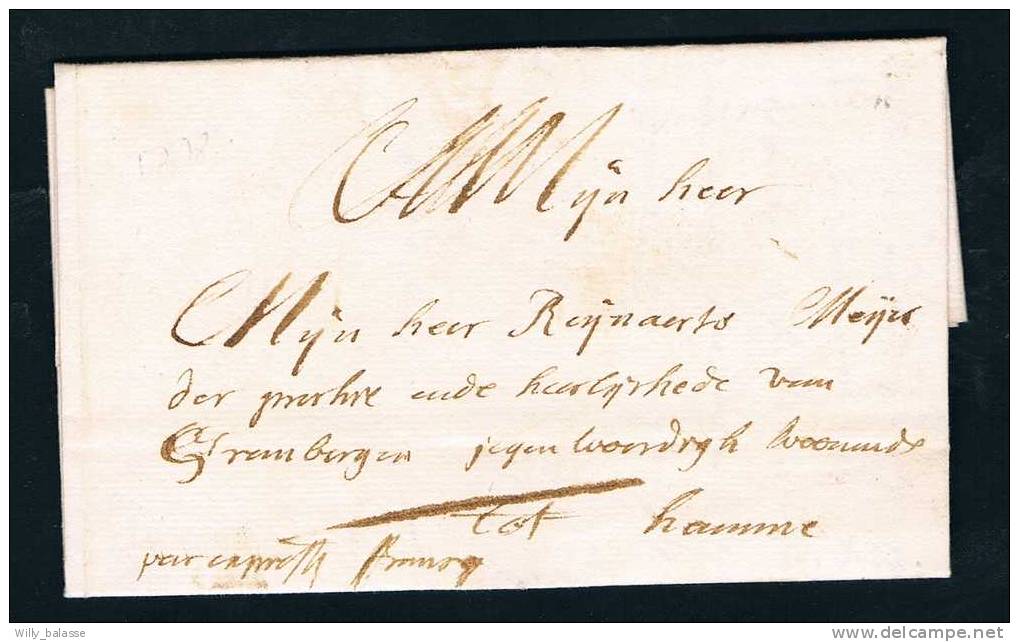 Mijn heer
Mijn heer Reijnaerts Meijer
der prochie ende heerlijchede van
Grembergen jegenwoordigh woonende
tot hamme
par express
Willy_balasse
delcampe.net